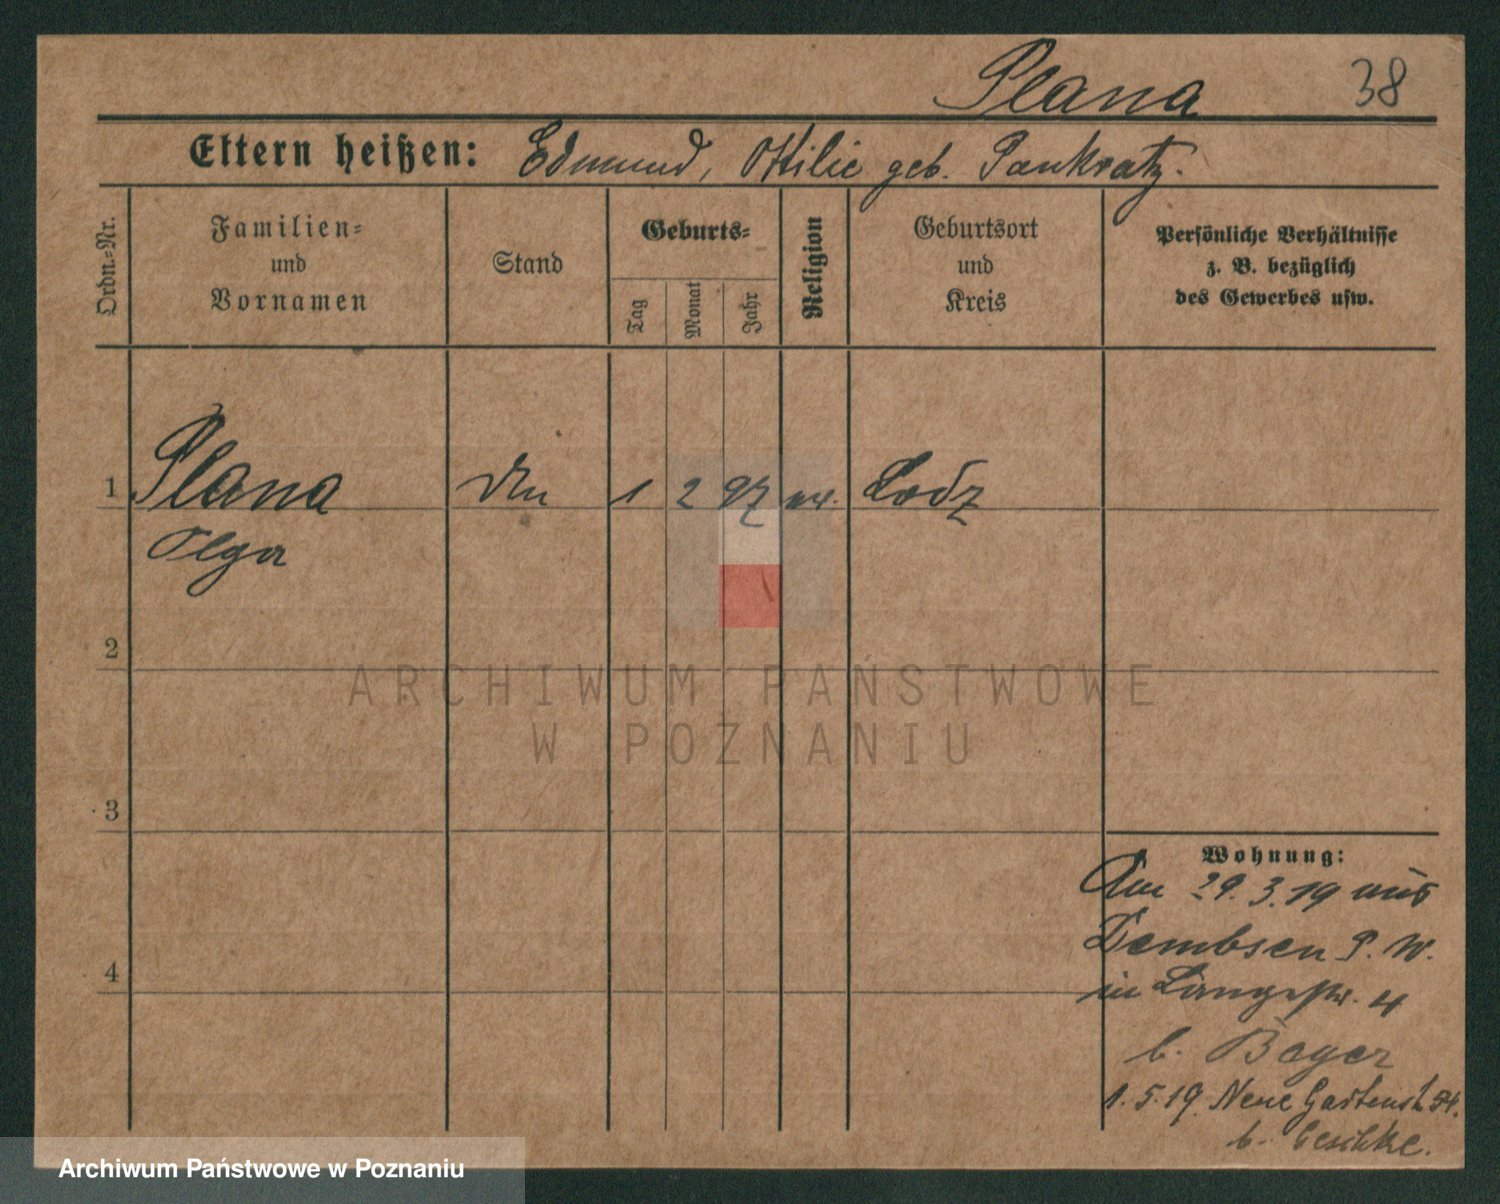 Plana 38
Eltern heißen: Edmund, Ottilie geb. Pankratz.
Ordn.-Nr.
Familien-
und
Vornamen
Stand
Geburts-
Tag
Monat
Jahr
Religion
Geburtsort
und
Kreis
Persönliche Verhältnisse
z. B. bezüglich
des Gewerbes usw.
1 Plana 1 2 97 ev. Lodz
Olga
2
ARCHIWUM PAŃSTWOWE
W POZNANIU
3
Wohnung:
Am 29.3.19 aus
Dembsen P. W.
4
in Langestr. 4
b. Bayer
1.5.19. Neue Gartenst.
b. Geschke.
Archiwum Państwowe w Poznaniu